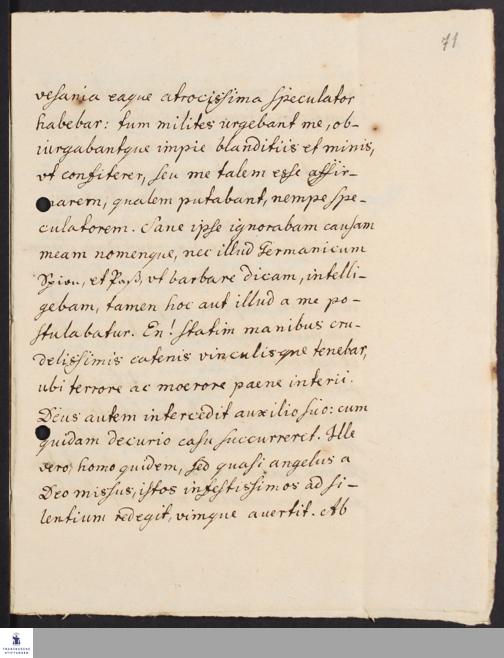 71
vesania eaque atrocissima speculator
habebar: tum milites urgebant me, ob-
iurgabantque impie blanditiis et minis,
vt confiterer, seu me talem esse affir-
marem, qualem putabant, nempe spe-
culatorem. Sane ipse ignorabam causam
meam nomenque, nec illud Germanicum
Spion, et Paß, vt barbare dicam, intelli-
gebam, tamen hoc aut illud a me po-
stulabatur. En! statim manibus cru-
delissimis catenis vinculisque tenebar,
ubi terrore ac moerore paene interii.
Deus autem intercedit auxilio suo: cum
quidam decurio casu succurreret. Ille
vero, homo quidem, sed quasi angelus a
Deo missus, istos infestissimos ad si-
lentium redegit, vimque avertit. Ab
FRANCKESCHE
STIFTUNGEN